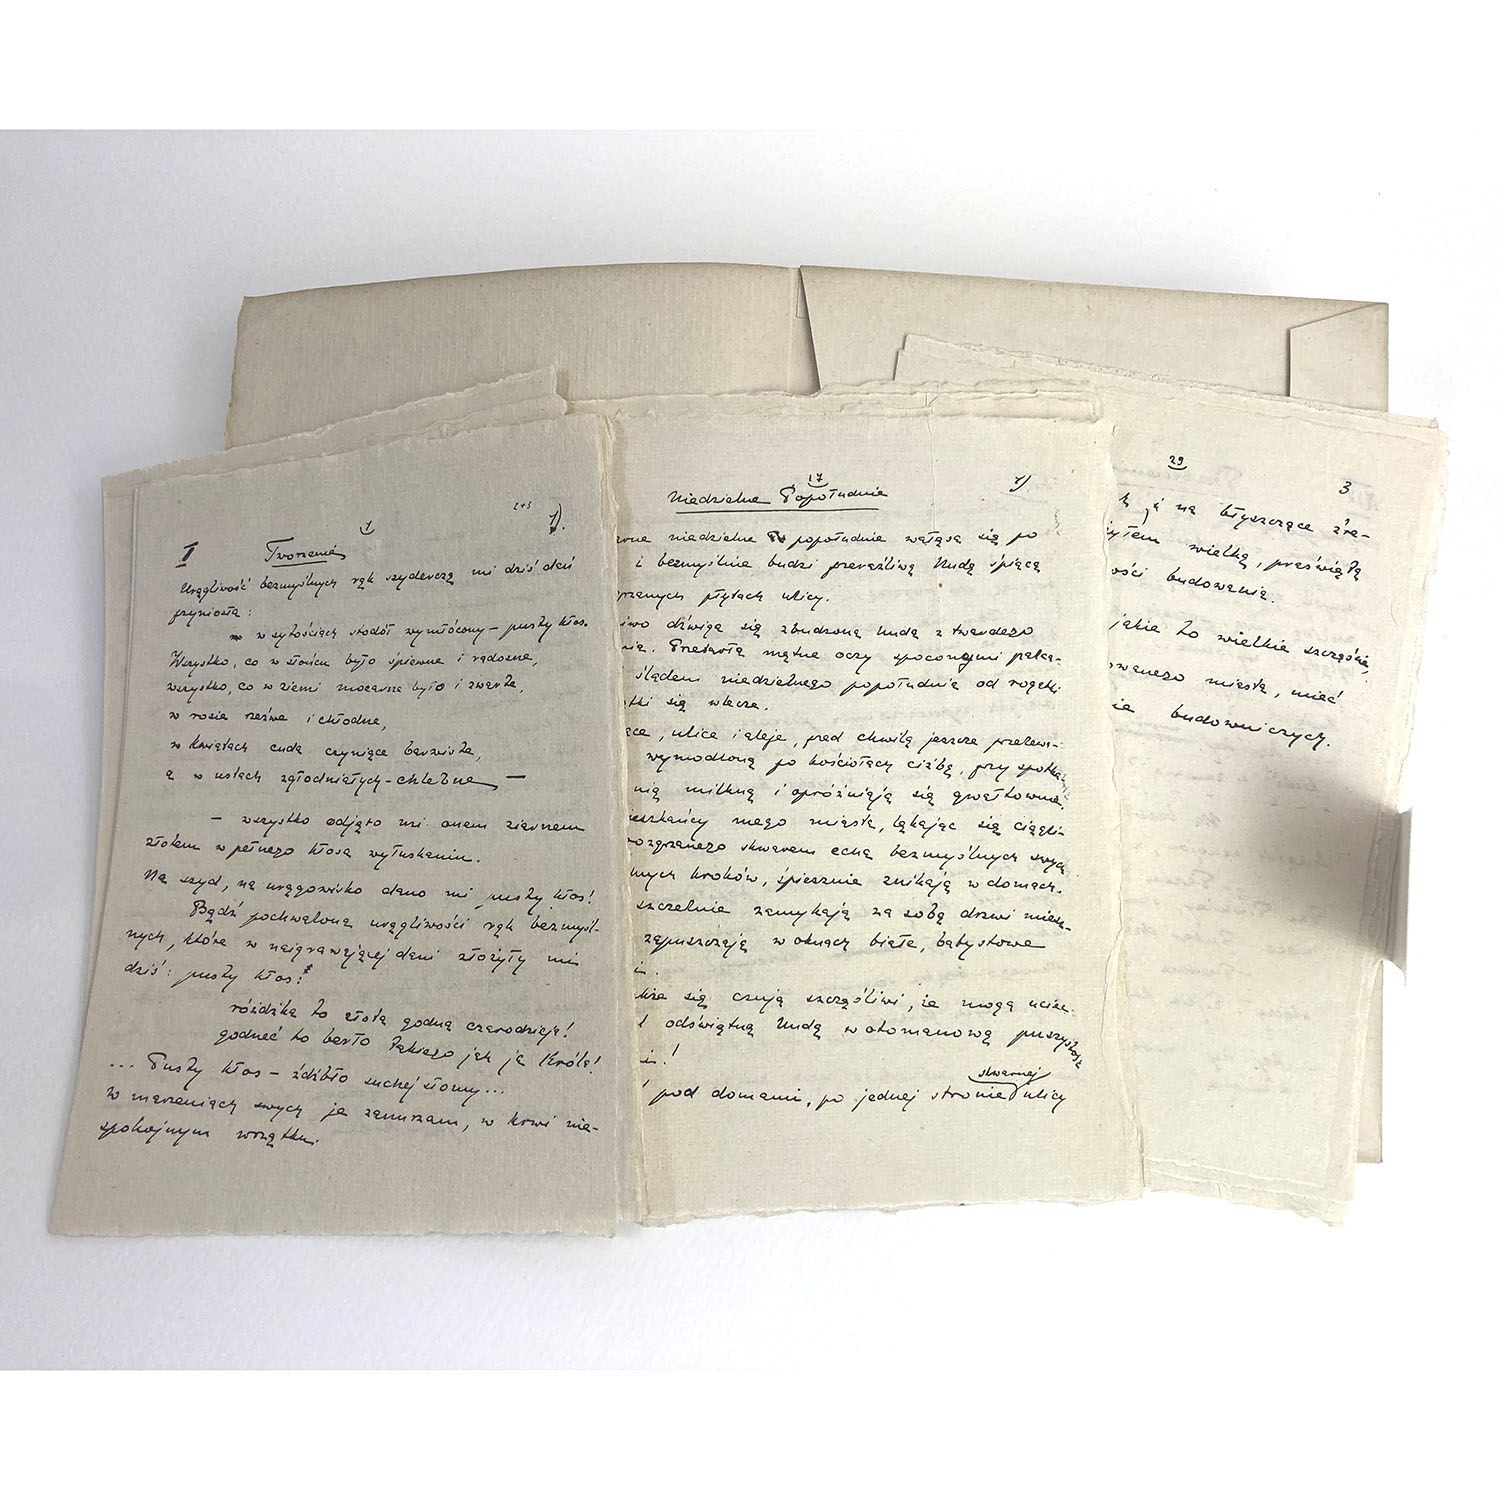 1
2+3
1).
I Tworzenie
Urągliwość bezmyślnych rąk szyderczą mi dziś dań
przyniosła:
w sytościach stodół wymłócony – pusty kłos.
Wszystko, co w słońcu było śpiewne i radosne,
wszystko, co w ziemi mocarne było i zwarte,
w rosie rzeźwe i chłodne,
w kwiatach cuda czyniące barwiste,
a w ustach zgłodniałych – chlebne –
– wszystko odjęto mi onem ziarnem
złotem w pełnego kłosa wyłuskaniu.
Na szyd, na urągowisko dano mi pusty kłos!
Bądź pochwaloną urągliwości rąk bezmyśl-
nych, które w naigrawającej dani złożyły mi
dziś: pusty kłos!
różdżka to złota godna czarodzieja!
godneć to berło takiego jak ja Króla!
... Pusty kłos – źdźbło suchej słomy...
w marzeniach swych je zanurzam, w krwi nie-
spokojnym wrzątku.
17
1)
Niedzielne Popołudnie
niedzielne popołudnie wałęsa się po
i bezmyślnie budzi przeraźliwą Nudę śpiącą
płytach ulicy.
dźwiga się zbudzona Nuda z twardego
Przetarła mętne oczy spoconymi palca-
śladem niedzielnego popołudnia od rogatki
się wlecze.
, ulice i aleje, przed chwilą jeszcze przelewa-
wymodloną po kościołach ciżbą, przy spotka-
nią milkną i opróżniają się gwałtownie.
mego miasta, lękając się ciągli-
skwarem echa bezmyślnych swych
kroków, śpiesznie znikają w domach.
szczelnie zamykają za sobą drzwi miesz-
zapuszczają w oknach białe, batystowe
się czują szczęśliwi, że mogą ucie-
odświętną Nudą w otomanową puszystość
!
skwarnej
pod domami, po jednej stronie ulicy
29
3
ją na błyszczące źre-
wielką, przeświętą
budowania.
jakie to wielkie szczęście,
miasta, mieć
budowniczych.